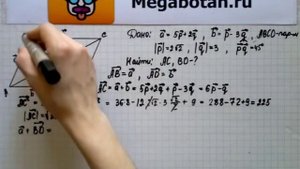 Megabotan.ru
C
Дано: a⃗=5p⃗+2q⃗, b⃗=p⃗-3q⃗, ABCD-парал
|p⃗|=2√2, |q⃗|=3, p⃗q⃗=45°
Найти: AC, BD-?
AB⃗=a⃗, AD⃗=b⃗
AC⃗=a⃗+b⃗=5p⃗+2q⃗+p⃗-3q⃗=6p⃗-q⃗
= 36·8-12·2√2·3·√2/2+9=288-72+9=225
|AC⃗|=
a⃗+BD⃗=